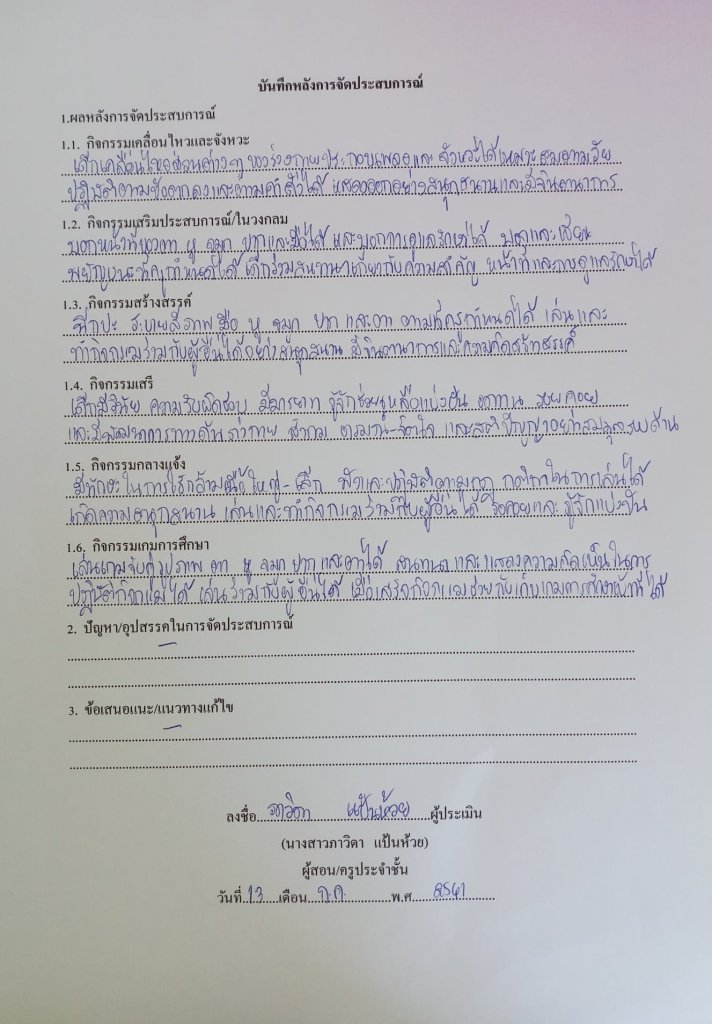 บันทึกหลังการจัดประสบการณ์
1.ผลหลังการจัดประสบการณ์
1.1. กิจกรรมเคลื่อนไหวและจังหวะ
เด็กเคลื่อนไหวส่วนต่างๆ ของร่างกายประกอบเพลงและจังหวะได้เหมาะสมตามวัย
ปฏิบัติตามข้อตกลงและตามคำสั่งได้ แสดงออกอย่างสนุกสนานและมีจินตนาการ
1.2. กิจกรรมเสริมประสบการณ์/ในวงกลม
บอกหน้าที่ของตา หู จมูก ปากและมือได้ และบอกการดูแลรักษาได้ และเขียน
พยัญชนะที่ครูกำหนดได้ เด็กร่วมสนทนาเกี่ยวกับความสำคัญ หน้าที่และการดูแลรักษาได้
1.3. กิจกรรมสร้างสรรค์
ฉีกปะ ระบายสีภาพ มือ หู จมูก ปาก และตา ตามที่ครูกำหนดได้ เล่นและ
ทำกิจกรรมร่วมกับผู้อื่นได้อย่างสนุกสนาน มีจินตนาการและความคิดสร้างสรรค์
1.4. กิจกรรมเสรี
เด็กมีวินัย ความรับผิดชอบ มีมารยาท รู้จักช่วยเหลือแบ่งปัน อดทน รอคอย
และมีพัฒนาการทางด้านร่างกาย สังคม อารมณ์-จิตใจ และสติปัญญาอย่างสมดุลรอบด้าน
1.5. กิจกรรมกลางแจ้ง
มีทักษะในการใช้กล้ามเนื้อใหญ่-เล็ก ฟังและปฏิบัติตามกฎ กติกาในการเล่นได้
เกิดความสนุกสนาน เล่นและทำกิจกรรมร่วมกับผู้อื่นได้ รอคอยและรู้จักแบ่งปัน
1.6. กิจกรรมเกมการศึกษา
เล่นเกมจับคู่รูปภาพ ตา หู จมูก ปาก และตาได้ สนทนาและแสดงความคิดเห็นในการ
ปฏิบัติกิจกรรมได้ เล่นร่วมกับผู้อื่นได้ เมื่อเสร็จกิจกรรมช่วยกันเก็บเกมการศึกษาเข้าที่ได้
2. ปัญหา/อุปสรรคในการจัดประสบการณ์
-
3. ข้อเสนอแนะ/แนวทางแก้ไข
-
ลงชื่อ ภาวิดา แป้นห้วย ผู้ประเมิน
(นางสาวภาวิดา แป้นห้วย)
ผู้สอน/ครูประจำชั้น
วันที่ 13 เดือน ก.ค. พ.ศ 2561